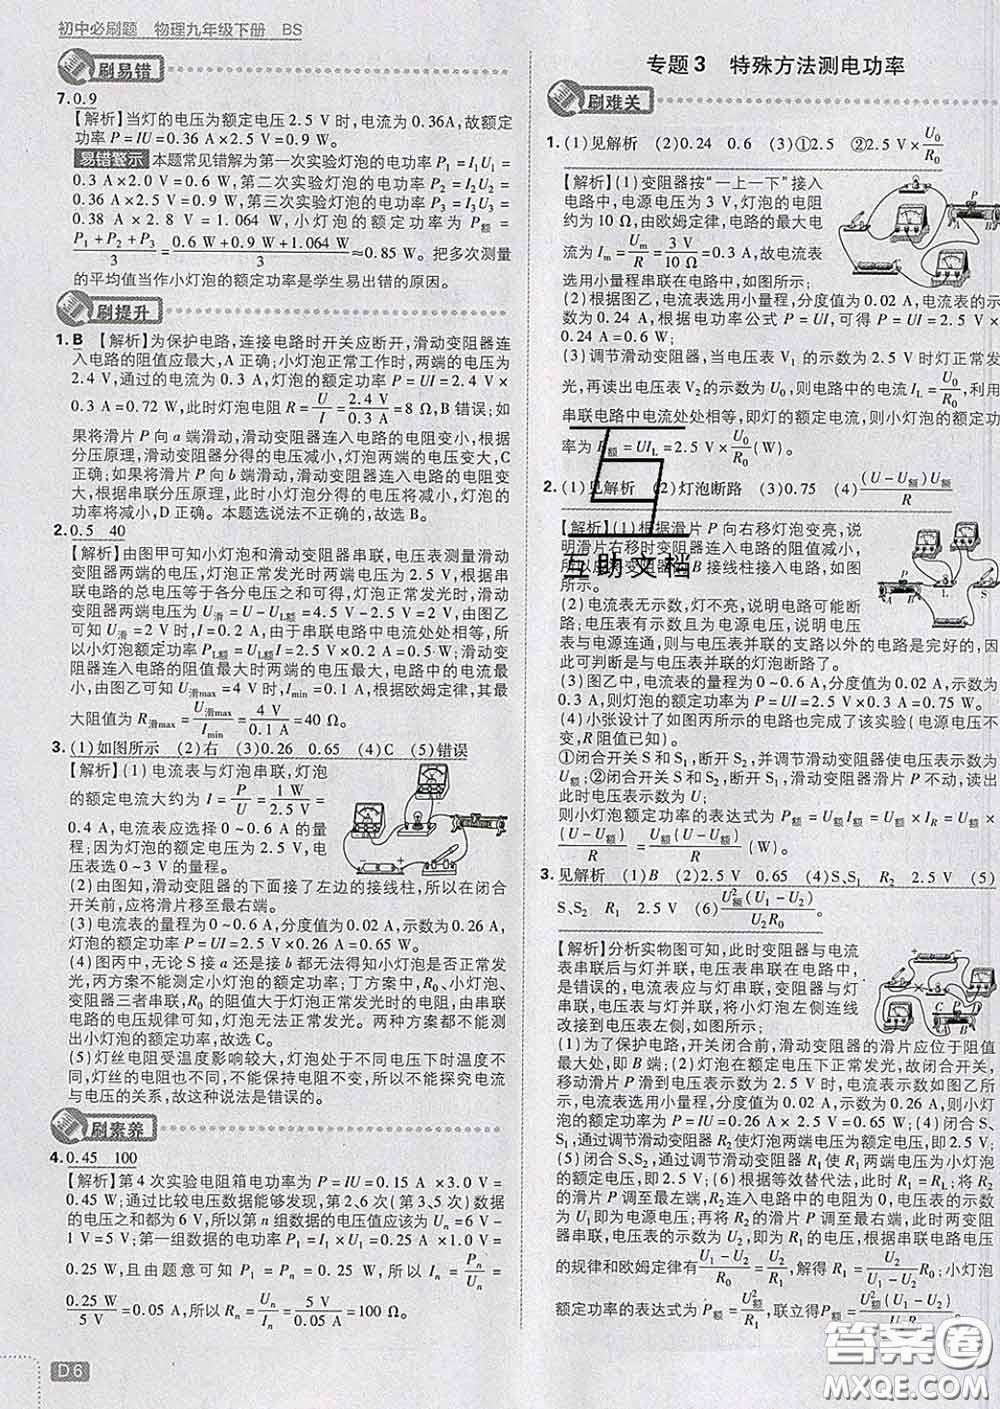 初中必刷题 物理九年级下册 BS
刷易错
7. 0.9
【解析】当灯的电压为额定电压2.5 V时,电流为0.36A,故额定
功率P=IU=0.36 A×2.5 V=0.9 W。
易错警示 本题常见错解为第一次实验灯泡的电功率P₁=I₁U₁=
0.3 A×2.0 V=0.6 W,第二次实验灯泡的电功率P₂=I₂U₂=
0.36 A×2.5 V=0.9 W,第三次实验灯泡的电功率P₃=I₃U₃=
0.38 A×2.8 V=1.064 W,小灯泡的额定功率为P额=
(P₁+P₂+P₃)/3=(0.6 W+0.9 W+1.064 W)/3≈0.85 W。把多次测量
的平均值当作小灯泡的额定功率是学生易出错的原因。
刷提升
1. B 【解析】为保护电路,连接电路时开关应断开,滑动变阻器连
入电路的阻值应最大,A正确;小灯泡正常工作时,两端的电压为
2.4 V,通过的电流为0.3 A,灯泡的额定功率P=UI=2.4 V×
0.3 A=0.72 W,此时灯泡电阻R=U/I=2.4 V/0.3 A=8 Ω,B错误;如
果将滑片P向a端滑动,滑动变阻器连入电路的电阻变小,根据
分压原理,滑动变阻器分得的电压减小,灯泡两端的电压变大,C
正确;如果将滑片P向b端滑动,滑动变阻器连入电路的电阻变
大,根据串联分压原理,此时小灯泡分得的电压将减小,灯泡的
功率将减小,D正确。本题选说法不正确的,故选B。
2. 0.5 40
【解析】由图甲可知小灯泡和滑动变阻器串联,电压表测量滑动
变阻器两端的电压,灯泡正常发光时两端电压为2.5 V,根据串
联电路的总电压等于各个分电压之和可得,灯泡正常发光时滑动
变阻器两端的电压U滑=U-U L额=4.5 V-2.5 V=2 V,由图乙
可知U滑=2 V时,I=0.2 A,由于串联电路中电流处处相等,所
以小灯泡额定功率P L额=U L额I=2.5 V×0.2 A=0.5 W;当滑动
变阻器连入电路的阻值最大时两端的电压最大,电路中的电流最
小,由图乙可知U滑max=4 V时,Imin=0.1 A,根据欧姆定律,其最
大阻值为R滑max=U滑max/Imin=4 V/0.1 A=40 Ω。
3. (1)如图所示 (2)右 (3)0.26 0.65 (4)C (5)错误
【解析】(1)电流表与灯泡串联,灯泡
的额定电流大约为I=P/U=1 W/2.5 V=
0.4 A,电流表应选择0~0.6 A的量
程;因为灯泡的额定电压为2.5 V,电
压表选0~3 V的量程。
(2)由图知,滑动变阻器的下面接了左边的接线柱,所以在闭合
开关前,应将滑片移至最右端。
(3)电流表的量程为0~0.6 A,分度值为0.02 A,示数为0.26 A,
灯泡的额定功率P=UI=2.5 V×0.26 A=0.65 W。
(4)图丙中,无论S接a还是接b都无法得知小灯泡是否正常发
光,丙方案不能测定小灯泡的额定功率;丁方案中,R₀、小灯泡、
变阻器三者串联,R₀的阻值大于灯泡正常发光时的电阻,由串联
电路的电压规律可知,灯泡无法正常发光。两种方案都不能测
出小灯泡的额定功率,故选C。
(5)灯丝电阻受温度影响较大,灯泡处于不同电压下时温度不
同,灯丝的电阻变化较大,不能保证电阻不变,不能探究电流
与电压的关系,故这种说法是错误的。
刷素养
4. 0.45 100
【解析】第4次实验电阻箱电功率为P=IU=0.15 A×3.0 V=
0.45 W;通过比较电压数据能够发现,第2、6次(第3、5次)数据
的电压之和都为6 V,所以第n组数据的电压值应该为Uₙ=6 V-
1 V=5 V;第一组数据的电功率P₁=I₁×U₁=0.25 A×1.0 V=
0.25 W,且由题意可知P₁=Pₙ=0.25 W,所以Iₙ=Pₙ/Uₙ=
0.25 W/5 V=0.05 A,所以Rₙ=Uₙ/Iₙ=5 V/0.05 A=100 Ω。
D6
专题3 特殊方法测电功率
刷难关
1. (1)见解析 (2)0.24 0.6 (3)①2.5 ②2.5 V×U₀/R₀
【解析】(1)变阻器按“一上一下”接入
电路中,电源电压为3 V,灯泡的电阻
约为10 Ω,由欧姆定律,电路的最大电
流为Im=Um/R=3 V/10 Ω=0.3 A,故电流表
选用小量程串联在电路中,如图所示。
(2)根据图乙,电流表选用小量程,分度值为0.02 A,电流表的示
数为0.24 A,根据电功率公式P=UI,可得P=UI=2.5 V×
0.24 A=0.6 W;
(3)调节滑动变阻器,当电压表V₁的示数为2.5 V时灯正常发
光,再读出电压表V₂的示数为U₀,则电路中的电流I L=U₀/R₀,利用
串联电路中电流处处相等,即灯的额定电流,则小灯泡的额定功
率为P额=UI L=2.5 V×U₀/R₀(W)。
2. (1)见解析 (2)灯泡断路 (3)0.75 (4)(U-U额)U额/R
【解析】(1)根据滑片P向右移灯泡变亮,说
明滑片右移时变阻器连入电路的阻值减小,
所以应将变阻器的B接线柱接入电路,如图
所示。
(2)电流表无示数,灯不亮,说明电路可能断
路;电压表有示数且为电源电压,说明电压
表与电源连通,则与电压表并联的支路以外的电路是完好的,因
此可判断是与电压表并联的灯泡断路了。
(3)图乙中,电流表的量程为0~0.6 A,分度值为0.02 A,示数为
0.3 A,则灯泡的额定功率P=UI=2.5 V×0.3 A=0.75 W。
(4)小张设计了如图丙所示的电路也完成了该实验(电源电压不
变,R阻值已知)。
①闭合开关S和S₁,断开S₂,并调节滑动变阻器使电压表示数为
U额;②闭合开关S和S₂,断开S₁,滑动变阻器滑片P不动,读出
此时电压表示数为U;
则小灯泡额定功率的表达式为P额=U额I额=U额×I R=U额×
(U-U额)/R=U额(U-U额)/R (W)。
3. 见解析 (1)B (2)2.5 0.65 (4)S、S₁ R₂ 2.5 V (5)
S、S₂ R₁ 2.5 V (6)U额²(U₁-U₂)/U₂R₀
【解析】分析实物图可知,此时变阻器与电流
表串联后与灯并联,电压表串联在电路中,
是错误的,电流表应与灯串联,变阻器与灯串
联,电压表与灯并联,将小灯泡左侧连线
改接到电压表左侧,如图所示:
(1)为了保护电路,开关闭合前,滑动变阻器的滑片应位于阻值
最大处,即B端;(2)灯泡在额定电压下正常发光,故闭合开关,
移动滑片P到电压表示数为2.5 V时,电流表的示数如图乙所
示,电流表选用小量程,分度值为0.02 A,示数为0.26 A,则小灯
泡的额定功率为P=IU=0.26 A×2.5 V=0.65 W;(4)闭合S、
S₁,通过调节滑动变阻器R₂使灯泡两端电压为额定电压,即2.5 V;
(5)闭合S、S₂,通过调节滑动变阻器R₁使R₁两端的电压为灯泡的
额定电压,即2.5 V;(6)根据等效替代法,此时R₁=R L,将R₂
的滑片P调至最左端,R₂连入电路中的电阻为0,电压表的示数
为U₁,即为电源电压;再将R₂的滑片P调至最右端,此时两变阻
器串联,电压表的示数为U₂,即为R₁两端的电压,根据串联电路电压
的规律和欧姆定律有(U₁-U₂)/R₀=U₂/R₁,解得R₁=U₂/(U₁-U₂)R₀;小灯泡
额定功率的表达式为P额=U额²/R₁,联立得P额=U额²(U₁-U₂)/U₂R₀。
互助文档
答案圈
MXQE.COM